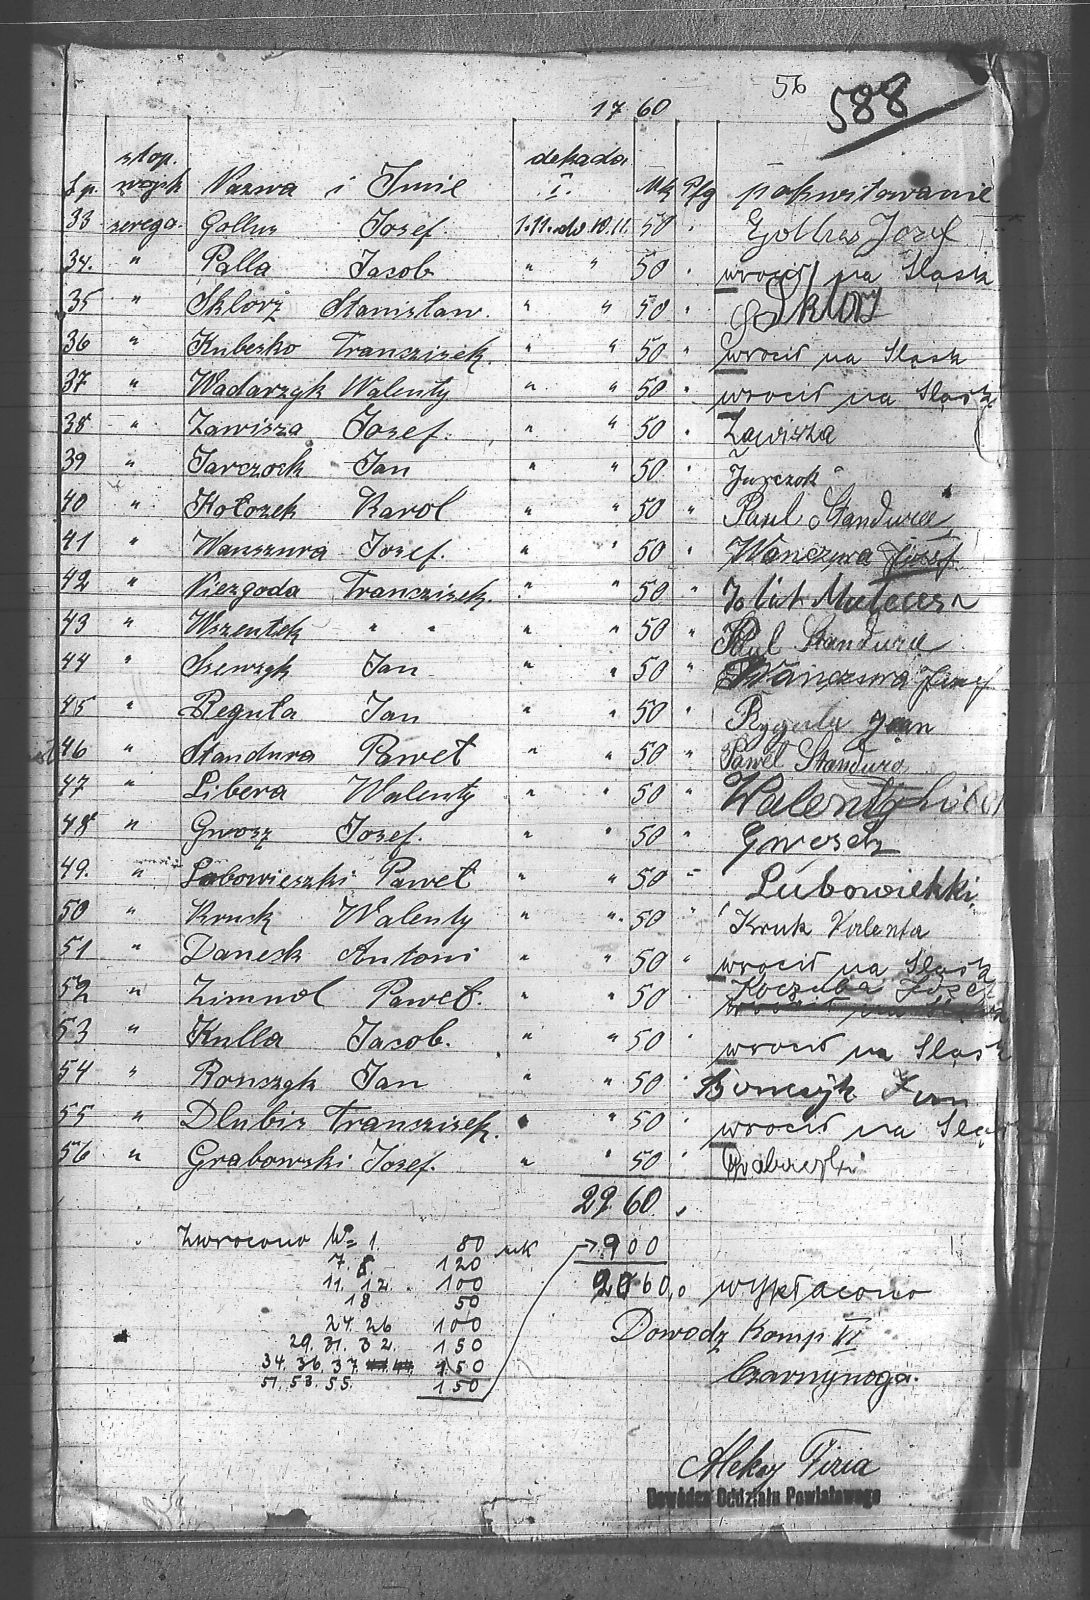 56
588
17 60
stop. dekada
Lp. wojsk Nazwa i Imie I. Mk Pfg pokwitowanie
33 szereg. Gollus Josef 1.11. do 10.11. 50 " Gollus Josef
34. " Palla Jacob " " 50 " wrocił na Śląsk
35 " Sklorz Stanisław " " 50 " Sklorz
36 " Kubesko Franciszek. " " 50 " wrocił na Śląsk
37 " Wadarzyk Walenty " " 50 " wrocił na Śląsk
38 " Zawisza Josef. " " 50 " Zawisza
39 " Jarczock Jan " " 50 " Jarczok
40 " Kołozek Karol " " 50 " Paul Standura
41 " Wanszura Josef. " " 50 " Wanczura Josef
42 " Niezgoda Franciszek. " " 50 "
43 " Wszentek " " " " 50 " Paul Standura
44 " Szewzyk Jan " " 50 " Wanczura Josef
45 " Reguła Jan " " 50 " Ryguła Jan
46 " Standura Paweł " " 50 " Paweł Standura
47 " Libera Walenty " " 50 " Walenty Libera
48 " Gwosz Josef. " " 50 " Gwosch
49. " Lubowieszki Paweł " " 50 " Lubowiekki
50 " Kruck Walenty " " 50 " Kruk Valenta
51 " Daneck Antoni " " 50 " wrocił na Śląsk
52 " Zimnol Paweł. " " 50 " Koczuba Josef
wrocił na Śląsk
53 " Kulla Jacob. " " 50 " wrocił na Śląsk
54 " Ronszyk Jan " " 50 " Jan
55 " Dlubis Franciszek. " " 50 " wrocił na Śląsk
56 " Grabowski Josef. " " 50 " Grabowski
29 60 .
Zwrocono № 1. 80 mk → 900
7. 8. 120
11. 12. 100 2060,0 wypłacono
18 50
24. 26 100 Dowodz Komp VI
29. 31. 32. 150
34. 36. 37. 150 Czarnynoga.
51. 53. 55. 150
Aleksy Fizia
Dowódca Oddziału Powiatowego